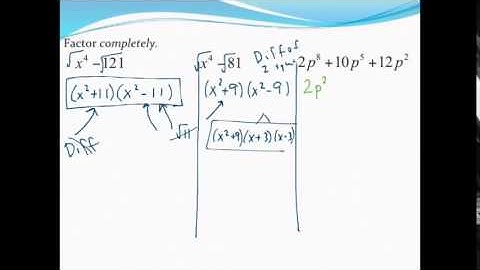 Factor completely.
√x⁴ - √121
(x²+11)(x²-11)
√11
Diff
√x⁴ - √81
Diff of
2
(x²+9)(x²-9)
(x²+9)(x+3)(x-3)
2p⁸ + 10p⁵ + 12p²
2p²